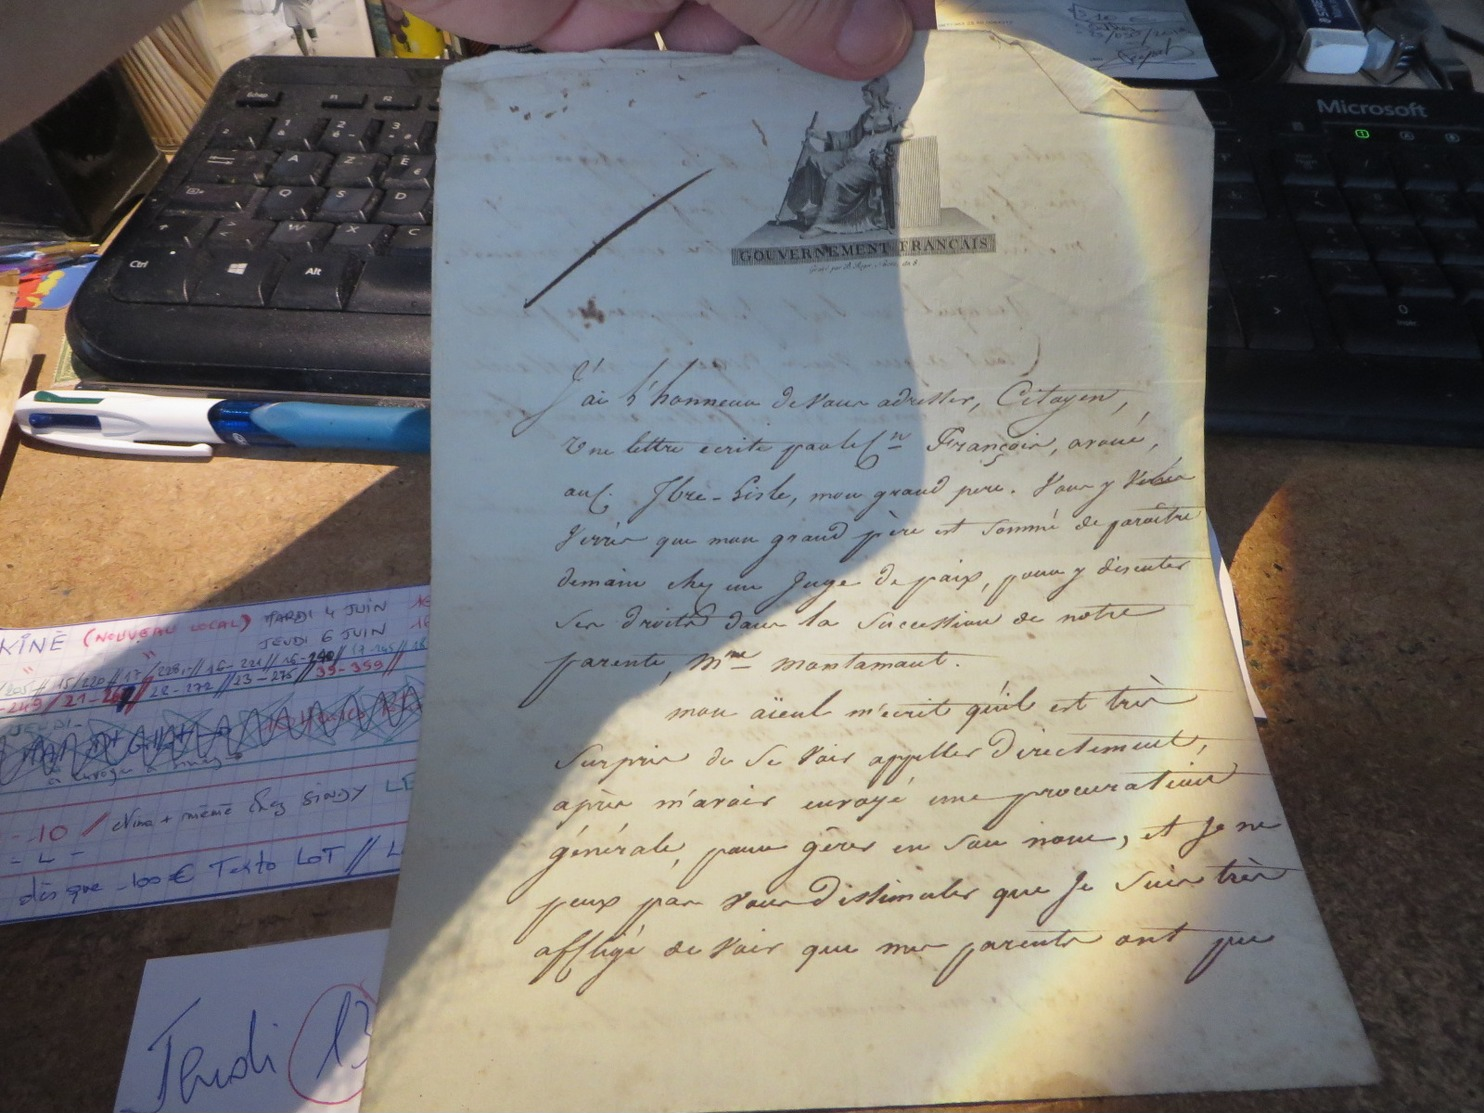 GOUVERNEMENT FRANÇAIS
J'ai l'honneur de vous adresser, Citoyen,
une lettre ecrite par le Cn François, avoué,
au C. mon grand pere. Vous y
verrés que mon grand père est sommé de paroître
demain chez un Juge de paix, pour y discuter
ses droits dans la succession de notre
parente, Mme Montamant.
mon aïeul m'ecrit qu'il est très
surpris de se voir appeller directement,
après m'avoir envoyé une procuration
générale, pour gérer en son nom, et Je ne
peux pas vous dissimuler que Je suis très
affligé de voir que mes parents ont pu
Microsoft
Ctrl
Alt
A Z E
Q S D
W X C
KINÉ (NOUVEAU LOCAL) MARDI 4 JUIN
JEUDI 6 JUIN
-10 / Nina + même chez SINDY LE
dès que -100€ Texto LOT // L
Jeudi 13